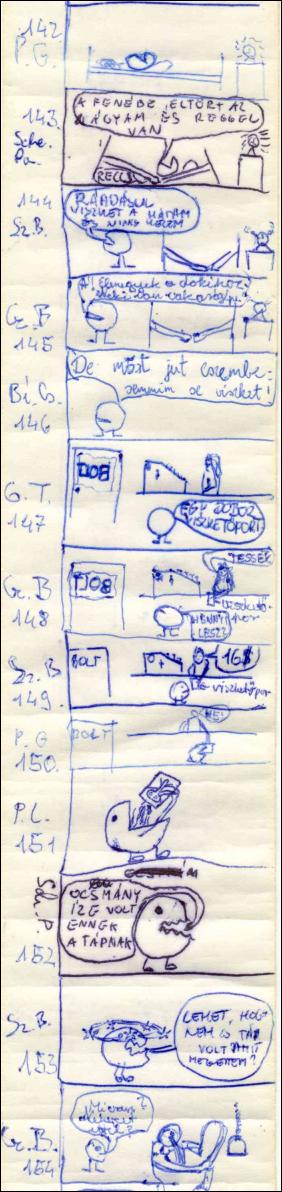 142
P. G.
143.
Sche.
Pa.
A FENÉBE, ELTÖRT AZ
ÁGYAM ÉS REGGEL
VAN
RECCS
144
Sz. B.
RÁADÁSUL
VISZKET A HÁTAM
ÉS NINCS KEZEM
Gr. B
145
Á! Elmegyek a dokihoz
neki van vakarója
Bi. Cs.
146
De most jut eszembe:
semmim se viszket!
G. T.
147
BOLT
EGY DOBOZ
VISZKETŐPORT!
Gr. B
148
BOLT
TESSÉK
viszkető-
por
MENNYI
LESZ?
Sz. B
149.
BOLT
16$
De viszketőpor
P. G
150.
BOLT
HE!
P. L.
151
Sch. P.
152
OCSMÁNY
ÍZE VOLT
ENNEK
A TÁPNAK
Sz. B.
153
LEHET, HOGY
NEM IS TÁP
VOLT AMIT
MEGETTEM?
Gr. B.
154